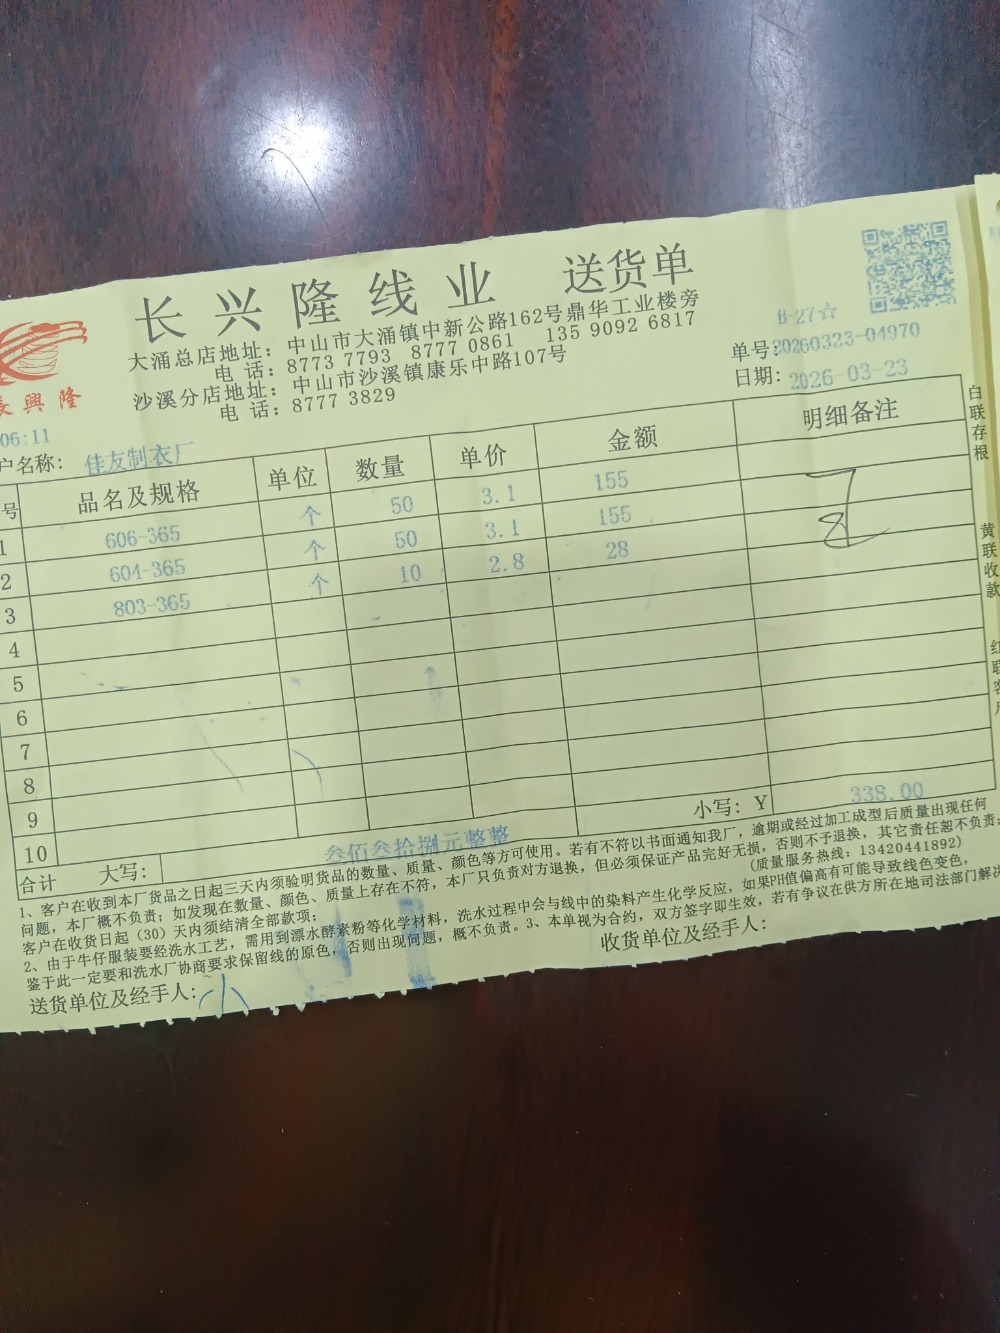 长兴隆线业 送货单
大涌总店地址：中山市大涌镇中新公路162号鼎华工业楼旁
电 话：8773 7793 8777 0861 135 9092 6817
沙溪分店地址：中山市沙溪镇康乐中路107号
电 话：8777 3829
長興隆
B-27☆
单号:20260323-04970
日期: 2026-03-23
06:11
户名称: 佳友制衣厂
号 品名及规格 单位 数量 单价 金额 明细备注
1 606-365 个 50 3.1 155
2 604-365 个 50 3.1 155
3 803-365 个 10 2.8 28
4
5
6
7
8
9
10
合计 大写: 叁佰叁拾捌元整整 小写: Y 338.00
1、客户在收到本厂货品之日起三天内须验明货品的数量、质量、颜色等方可使用。若有不符以书面通知我厂，逾期或经过加工成型后质量出现任何
问题，本厂概不负责；如发现在数量、颜色、质量上存在不符，本厂只负责对方退换，但必须保证产品完好无损，否则不予退换，其它责任恕不负责；
客户在收货日起（30）天内须结清全部款项； (质量服务热线：13420441892)
2、由于牛仔服装要经洗水工艺，需用到漂水酵素粉等化学材料，洗水过程中会与线中的染料产生化学反应，如果PH值偏高有可能导致线色变色，
鉴于此一定要和洗水厂协商要求保留线的原色，否则出现问题，概不负责。3、本单视为合约，双方签字即生效，若有争议在供方所在地司法部门解决
送货单位及经手人: 小 收货单位及经手人:
白联存根
黄联收款
红联客户